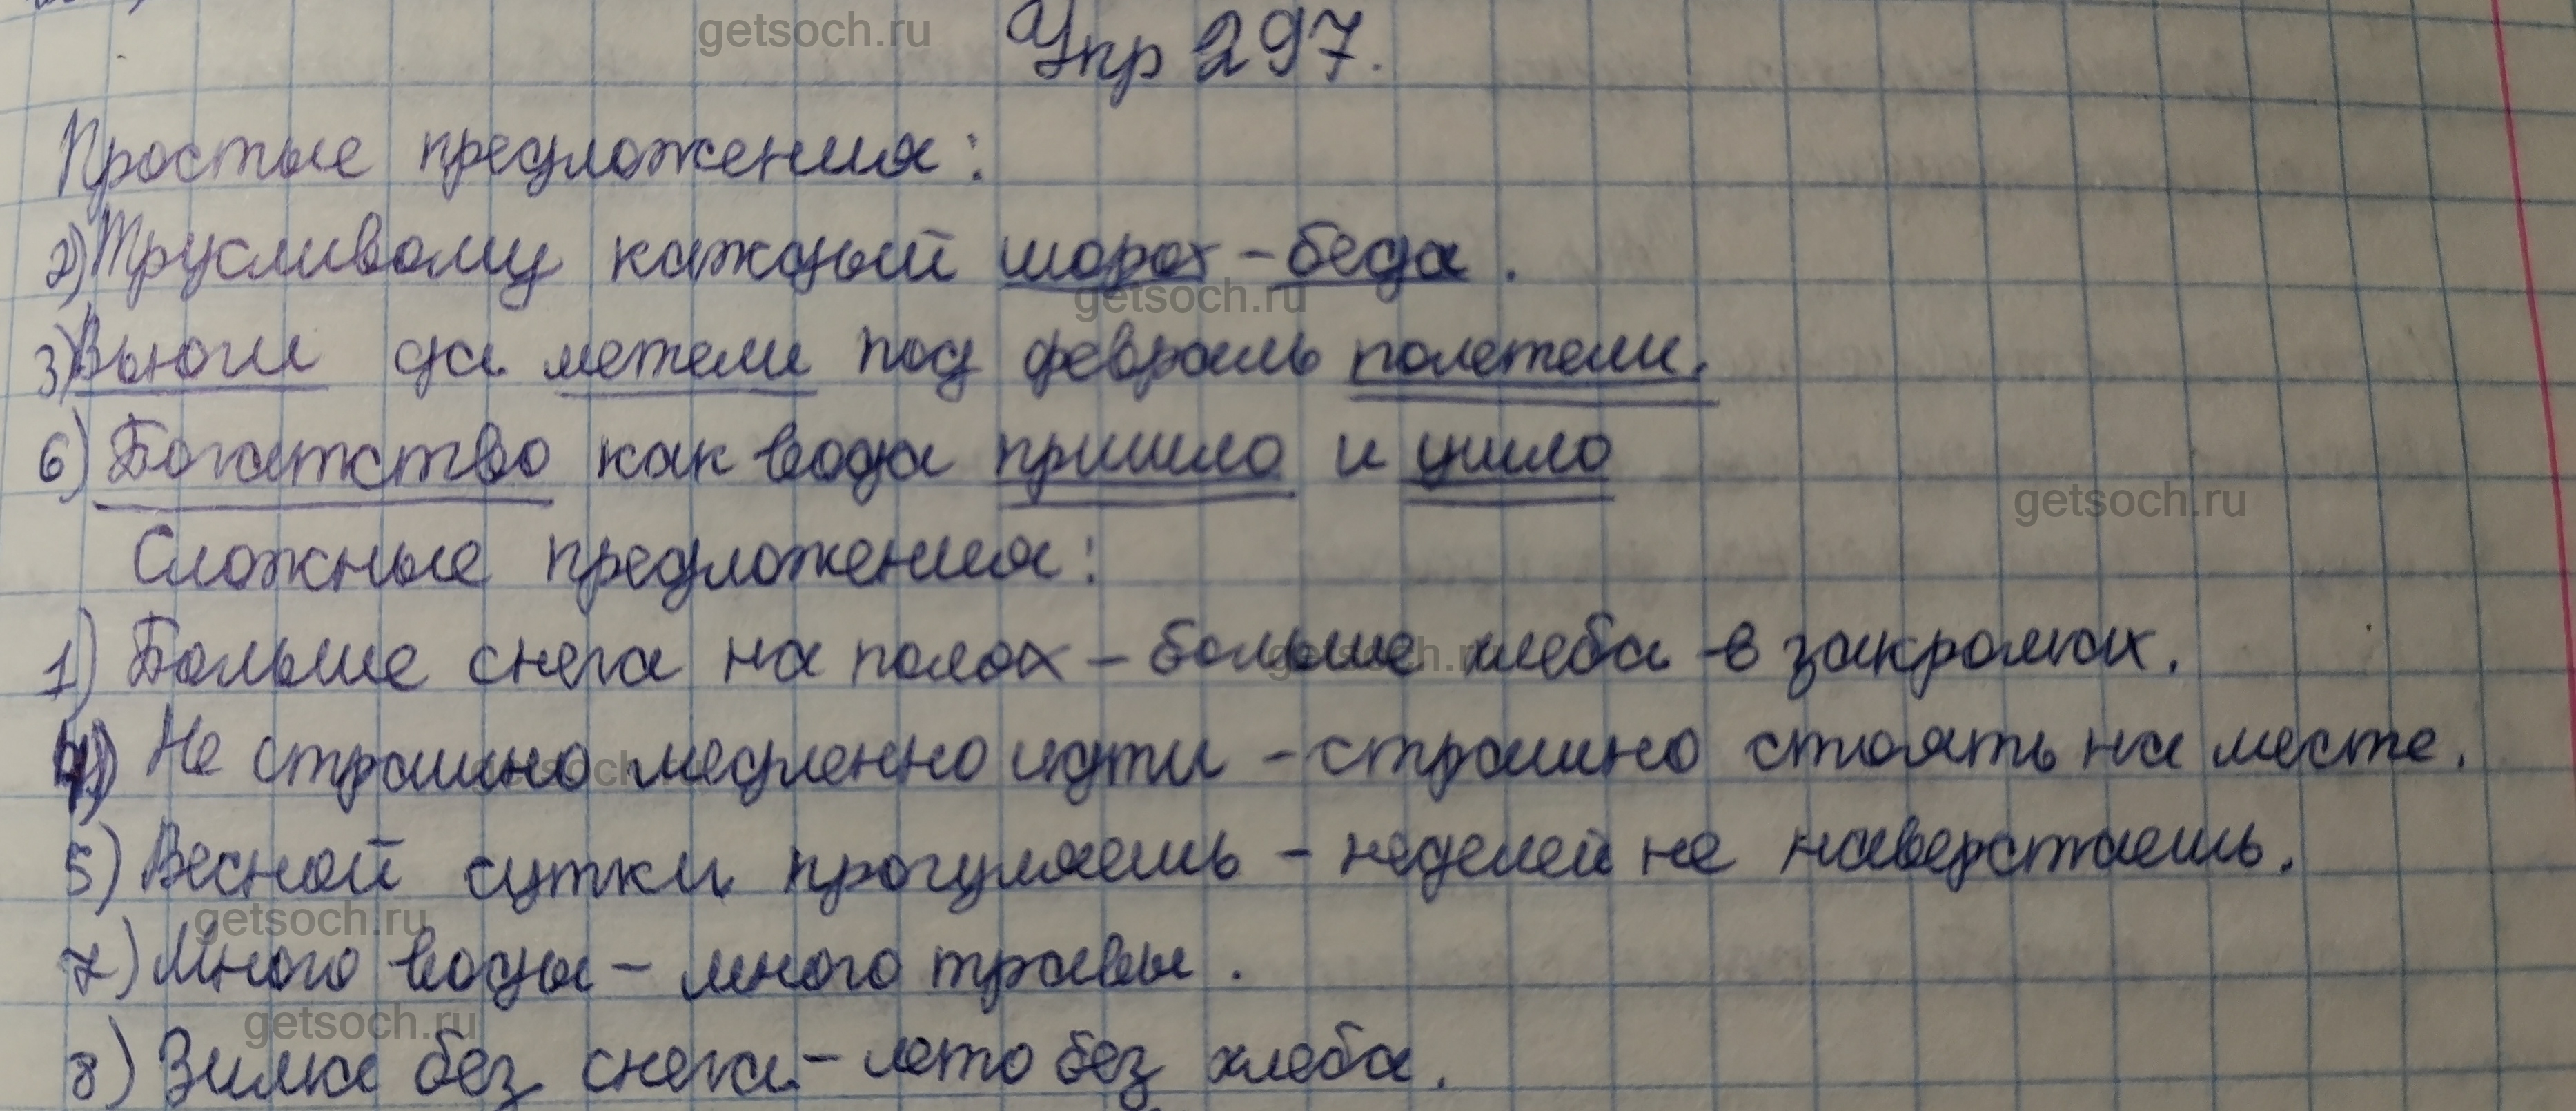 Упр 297.
Простые предложения:
2) Трусливому каждый шорох - беда.
3) Вьюги да метели под февраль полетели.
6) Богатство как вода пришло и ушло
Сложные предложения:
1) Больше снега на полях - больше хлеба в закромах.
4) Не страшно медленно идти - страшно стоять на месте.
5) Весной сутки прогуляешь - неделей не наверстаешь.
7) Много воды - много травы.
8) Зима без снега - лето без хлеба.
getsoch.ru
getsoch.ru
getsoch.ru
getsoch.ru
getsoch.ru
getsoch.ru
getsoch.ru